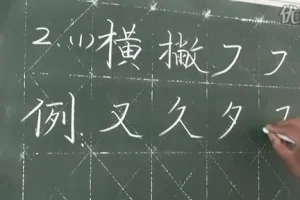 2.(1)横撇フフ
例.又久夕